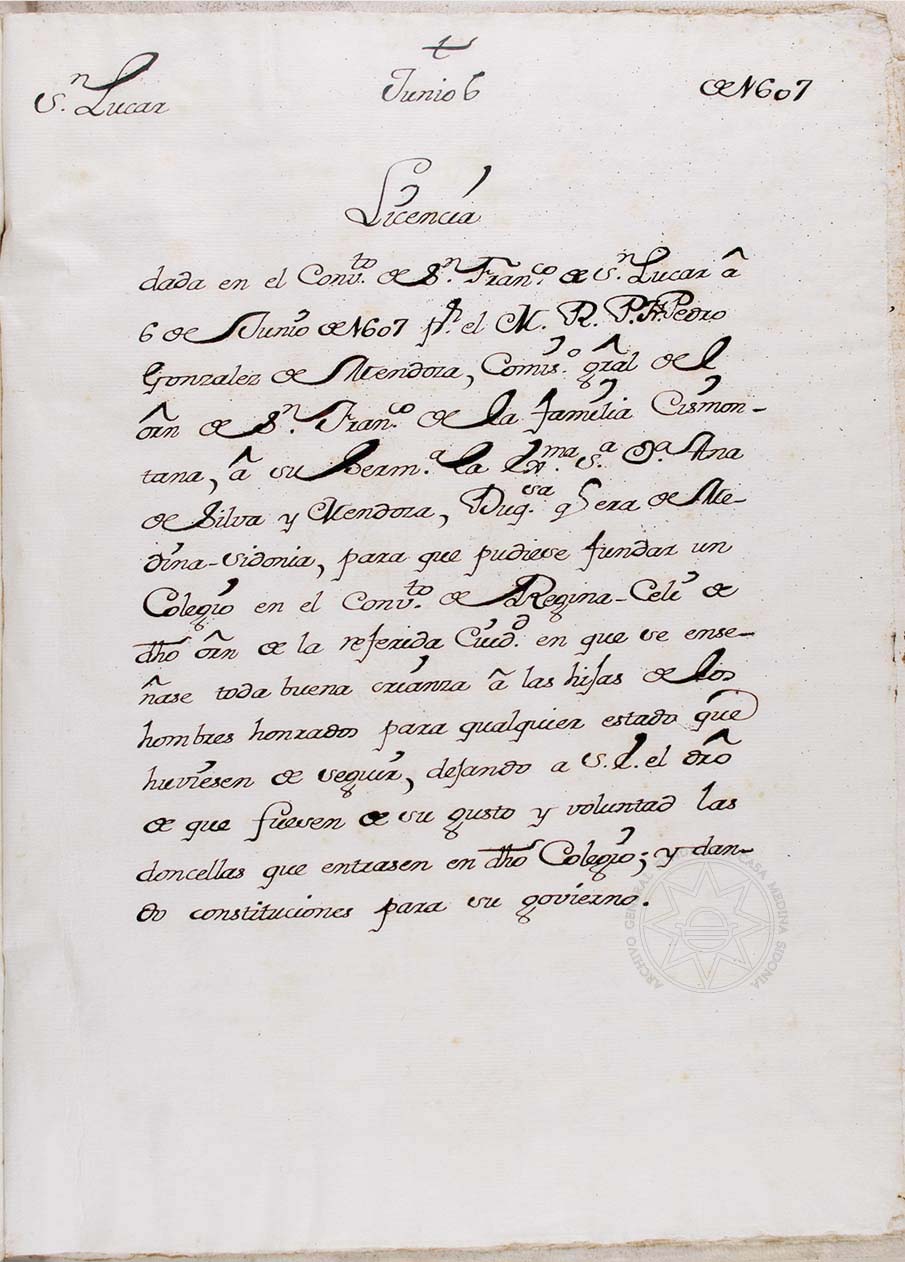 †
S.n Lucar Junio 6 de 1607
Licencia
dada en el Conv.to de S.n Fran.co de S.n Lucar â
6 de Junio de 1607 pr. el M. R. P. Fr. Pedro
Gonzalez de Mendoza, Comis.o grâl de el
ôrn de S.n Fran.co de la familia Cismon-
tana, â su herm.a la Ex.ma S.a D.a Ana
de Silva y Mendoza, Duq.sa q.e era de Me-
dina-Sidonia, para que pudiese fundar un
Colegio en el Conv.to de Regina-Celi de
dho ôrn de la referida Ciud.d en que se ense-
ñase toda buena crianza â las hijas de los
hombres honrados para qualquier estado que
huviesen de seguir, dejando a S. E. el drô
de que fuesen de su gusto y voluntad las
doncellas que entrasen en dho Colegio; y dan-
do constituciones para su govierno.
ARCHIVO GENERAL CASA MEDINA SIDONIA